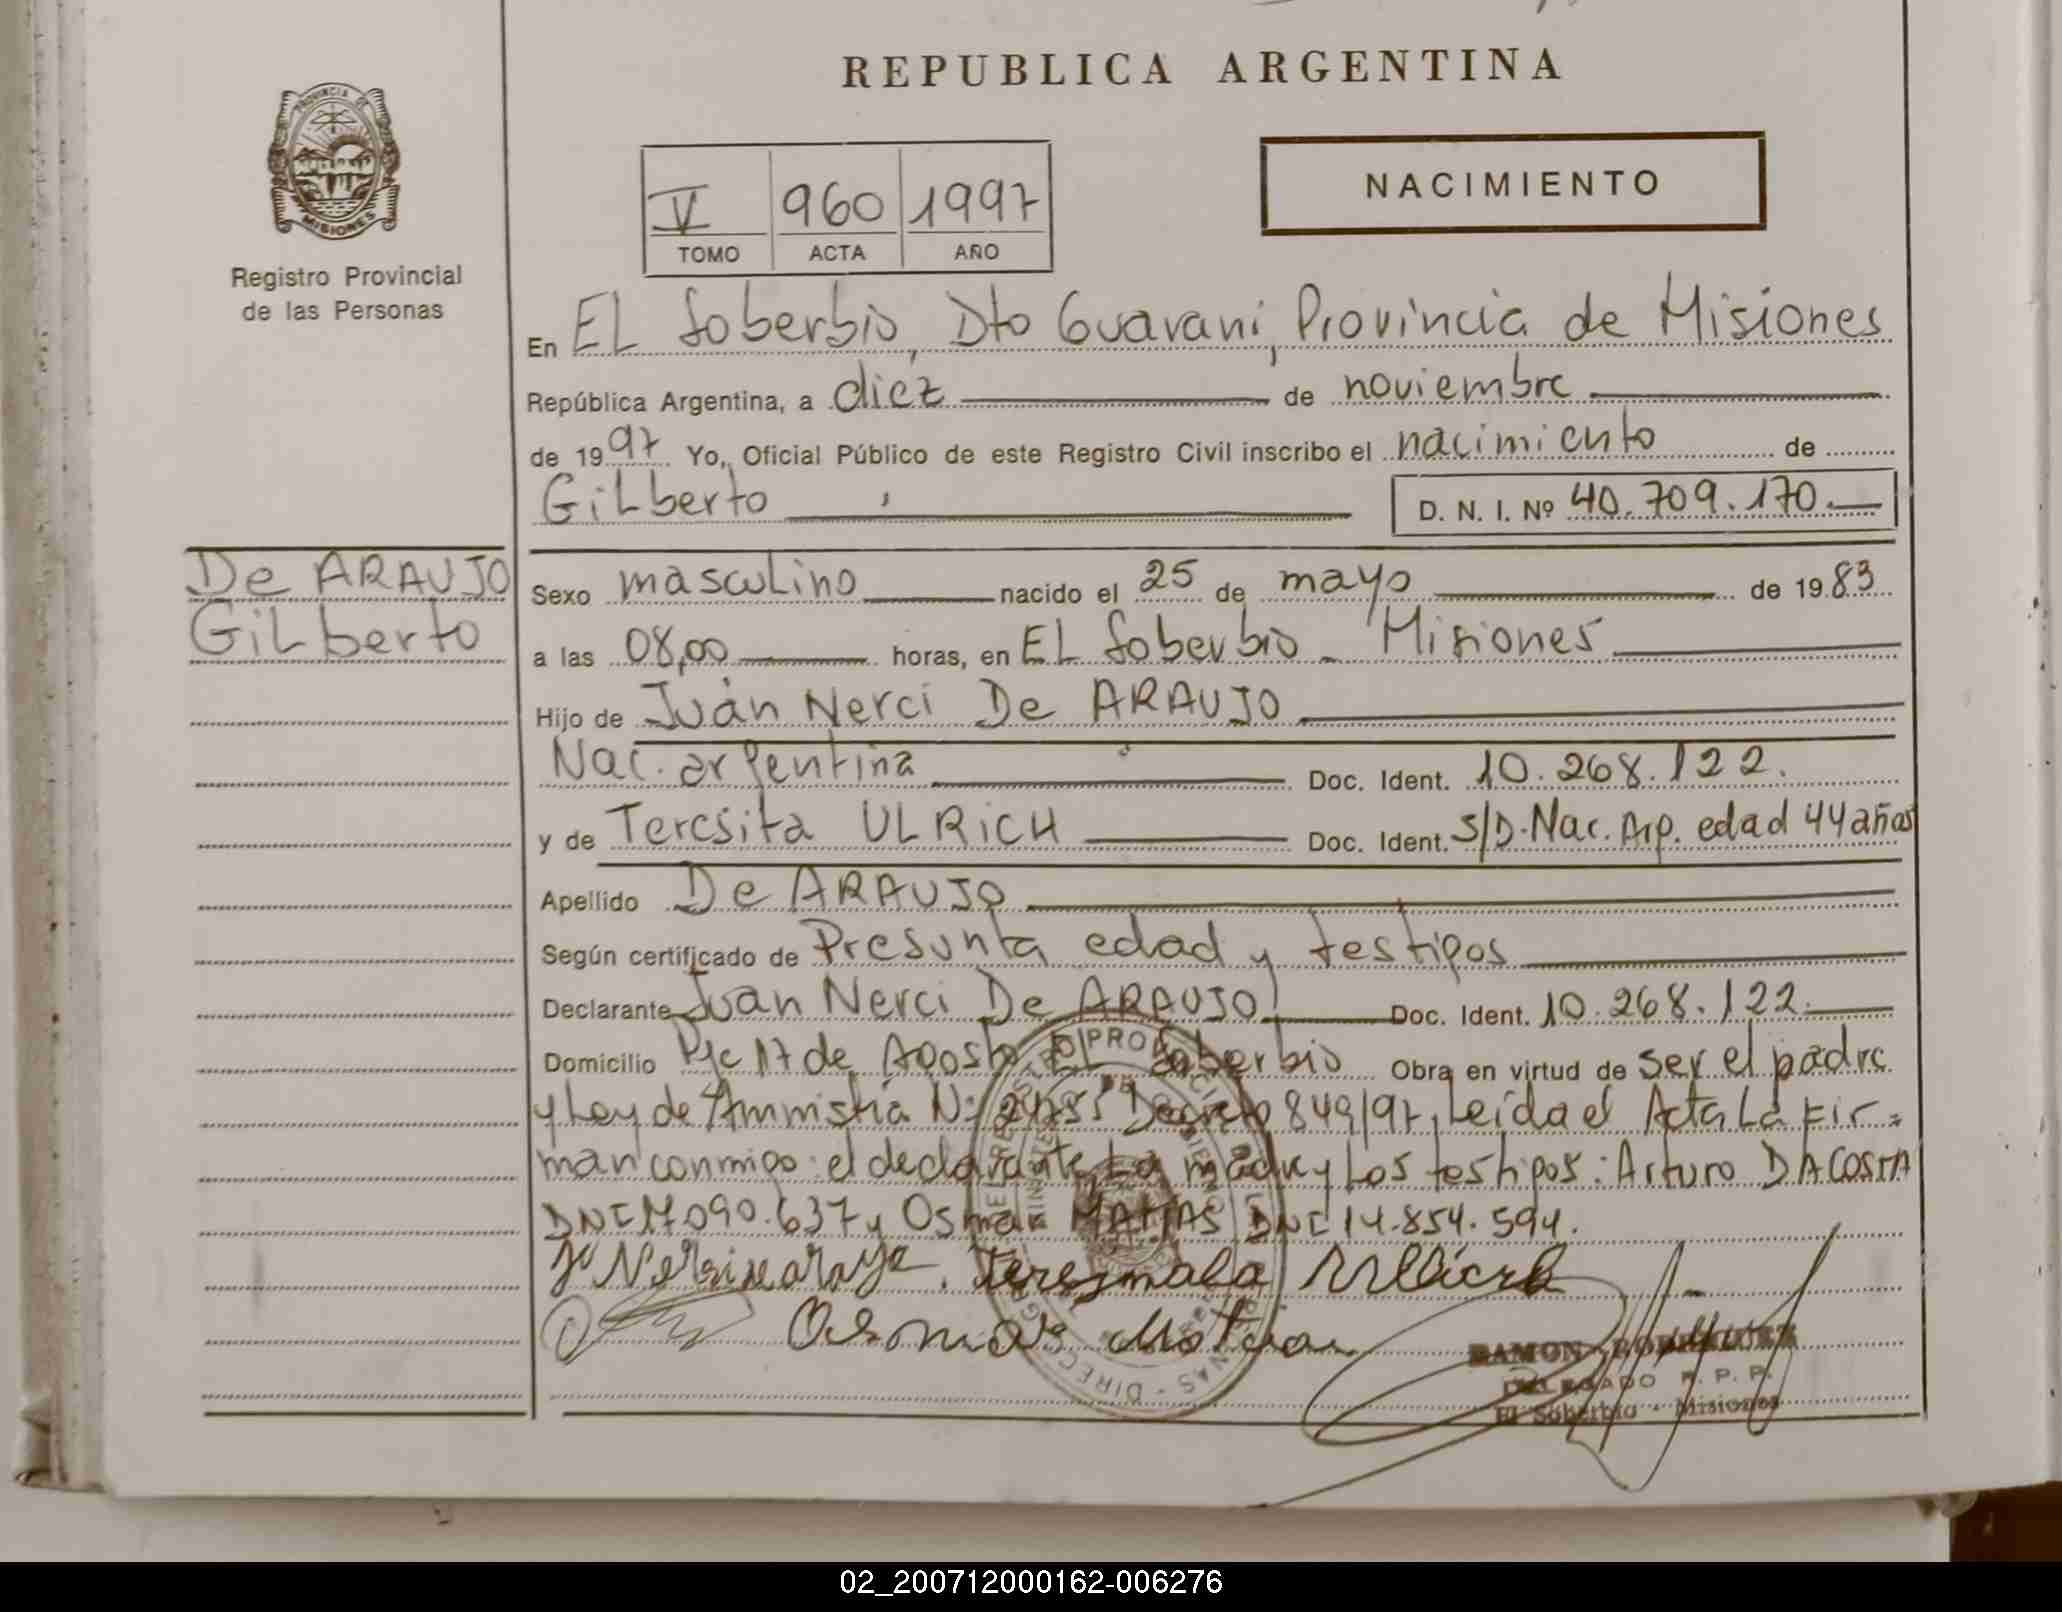 REPUBLICA ARGENTINA
PROVINCIA DE
MISIONES
Registro Provincial
de las Personas
NACIMIENTO
V 960 1997
TOMO ACTA AÑO
En EL Soberbio, Dto Guarani, Provincia de Misiones
República Argentina, a diez de noviembre
de 1997 Yo, Oficial Público de este Registro Civil inscribo el nacimiento de
Gilberto D. N. I. Nº 40.709.170.
De ARAUJO
Gilberto
Sexo masculino nacido el 25 de mayo de 1983
a las 08,00 horas, en EL Soberbio - Misiones
Hijo de Juan Nerci De ARAUJO
Nac. argentina Doc. Ident. 10.268.122.
y de Teresita ULRICH Doc. Ident. S/D. Nac. Arg. edad 44 años
Apellido De ARAUJO
Según certificado de Presunta edad y testigos
Declarante Juan Nerci De ARAUJO Doc. Ident. 10.268.122.
Domicilio Pje 17 de Agosto El Soberbio Obra en virtud de ser el padre
y Ley de Amnistia Nº Decreto 849/97, Leida el Acta La fir=
man conmigo: el declarante La madre y Los testigos: Arturo DACOSTA
DNI 17.090.637 y Osmar MATIAS DNI 14.854.594.
Osmar
RAMON RODRIGUEZ
DELEGADO R. P. P.
El Soberbio - Misiones
02_200712000162-006276